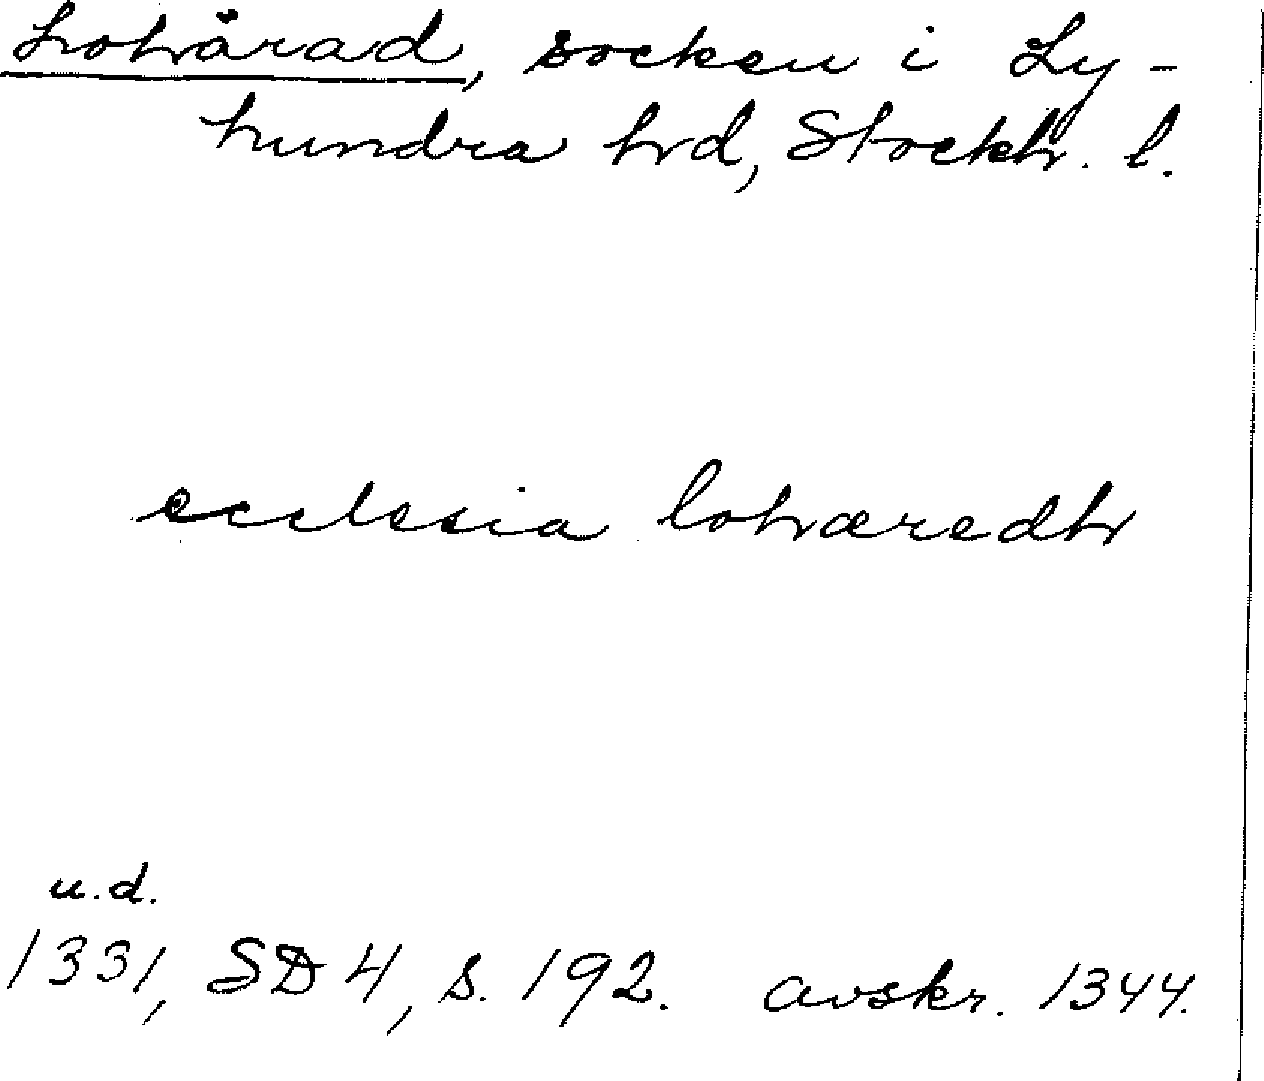 Lohärad, socken i Ly-
hundra hrd, Stockh. l.
ecclesia lohæredh
u.d.
1331, SD 4, s. 192. avskr. 1344.